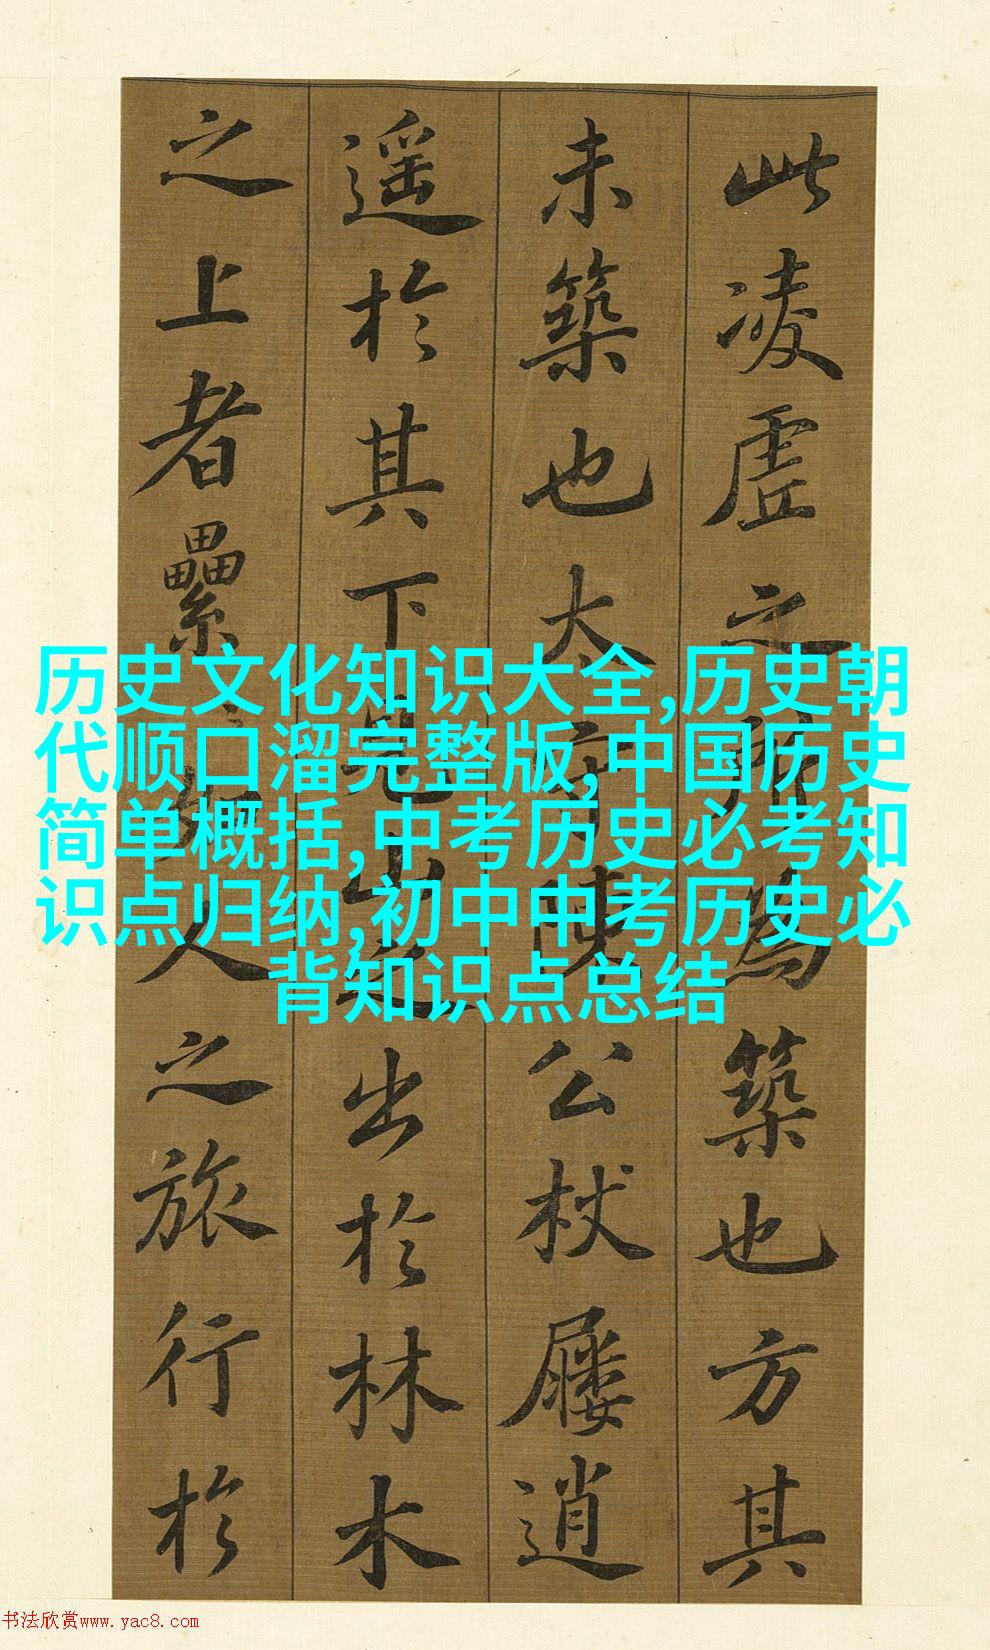 此凌虛之所為築也方其
未築也太守陳公杖屨逍
遥於其下見山之出於林木
之上者纍〻如人之旅行於
历史文化知识大全,历史朝
代顺口溜完整版,中国历史
简单概括,中考历史必考知
识点归纳,初中中考历史必
背知识点总结
书法欣赏www.yac8.com